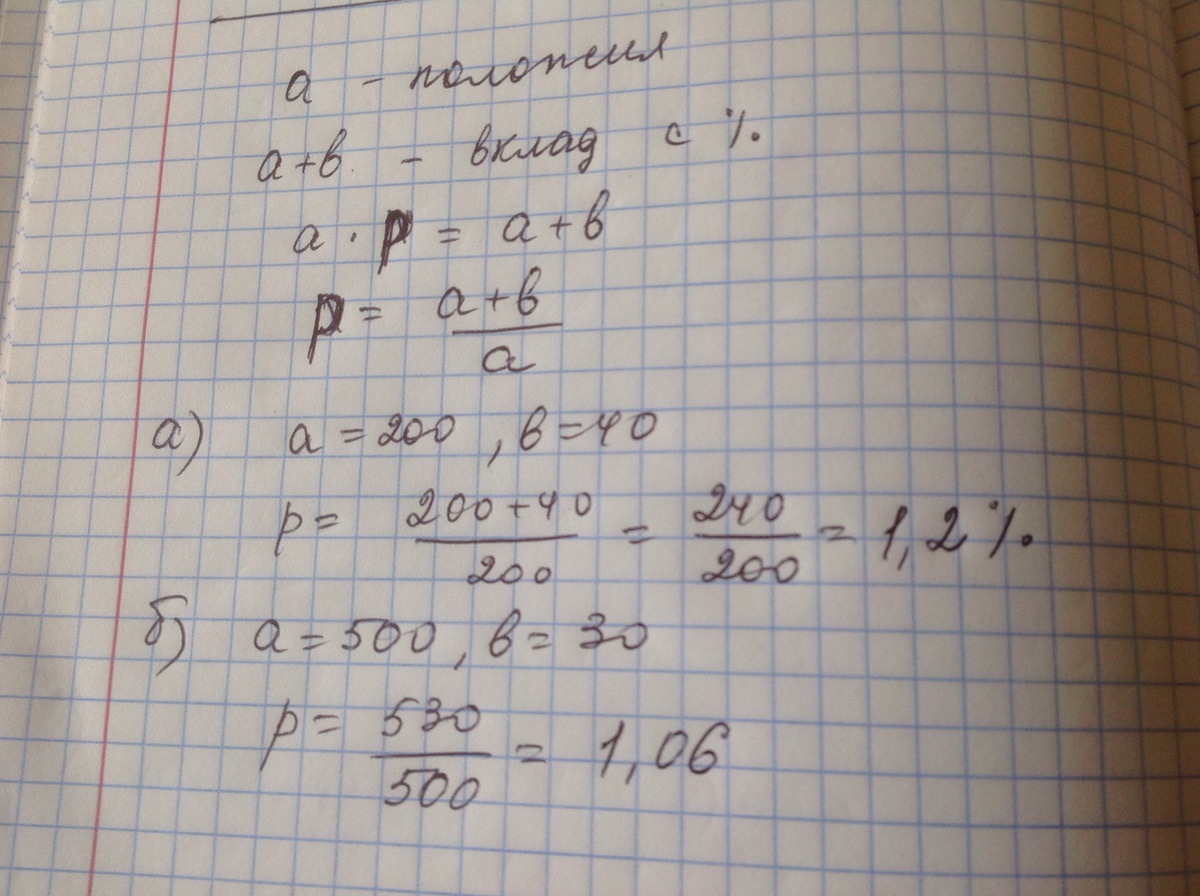 а - положил
а+в - вклад с %.
а · р = а+в
р = а+в/а
а) а = 200, в = 40
р = 200+40/200 = 240/200 = 1,2 %.
б) а = 500, в = 30
р = 530/500 = 1,06